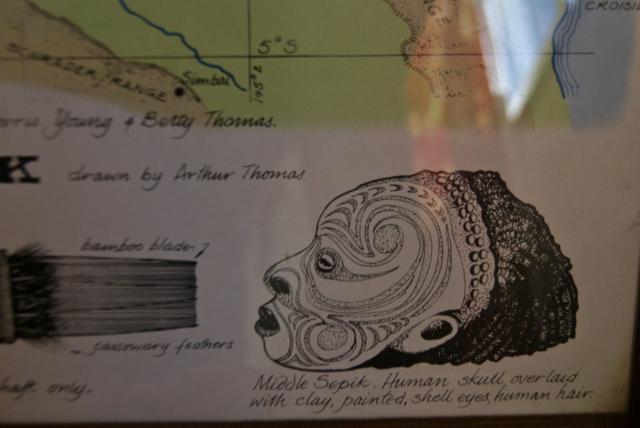 CROISIL
NGE
5°S
145°E
SCHRADER RANGE
Simbai
orris Young & Betty Thomas.
K drawn by Arthur Thomas
bamboo blade,
cassowary feathers
haft only.
Middle Sepik. Human skull, overlaid
with clay, painted, shell eyes, human hair.